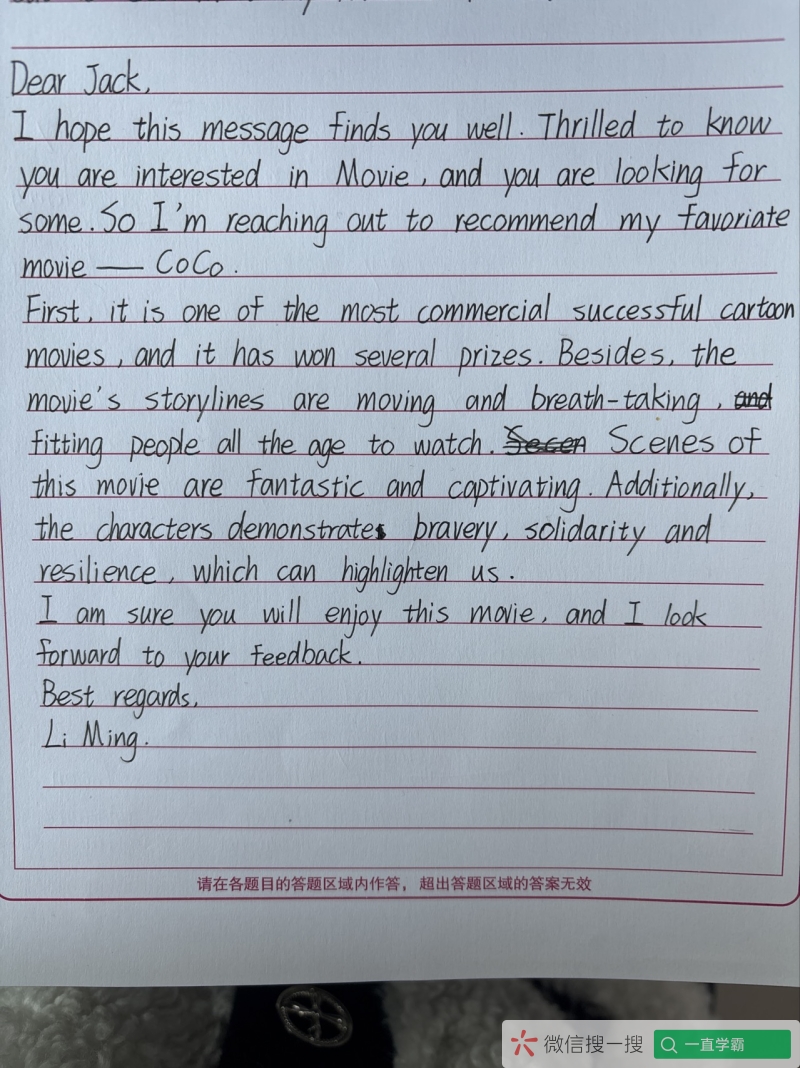 Dear Jack,
I hope this message finds you well. Thrilled to know
you are interested in Movie, and you are looking for
some. So I'm reaching out to recommend my favoriate
movie — CoCo.
First, it is one of the most commercial successful cartoon
movies, and it has won several prizes. Besides, the
movie's storylines are moving and breath-taking, and
fitting people all the age to watch. Secen Scenes of
this movie are fantastic and captivating. Additionally,
the characters demonstrates bravery, solidarity and
resilience, which can highlighten us.
I am sure you will enjoy this movie, and I look
forward to your feedback.
Best regards,
Li Ming.
请在各题目的答题区域内作答，超出答题区域的答案无效
微信搜一搜 一直学霸